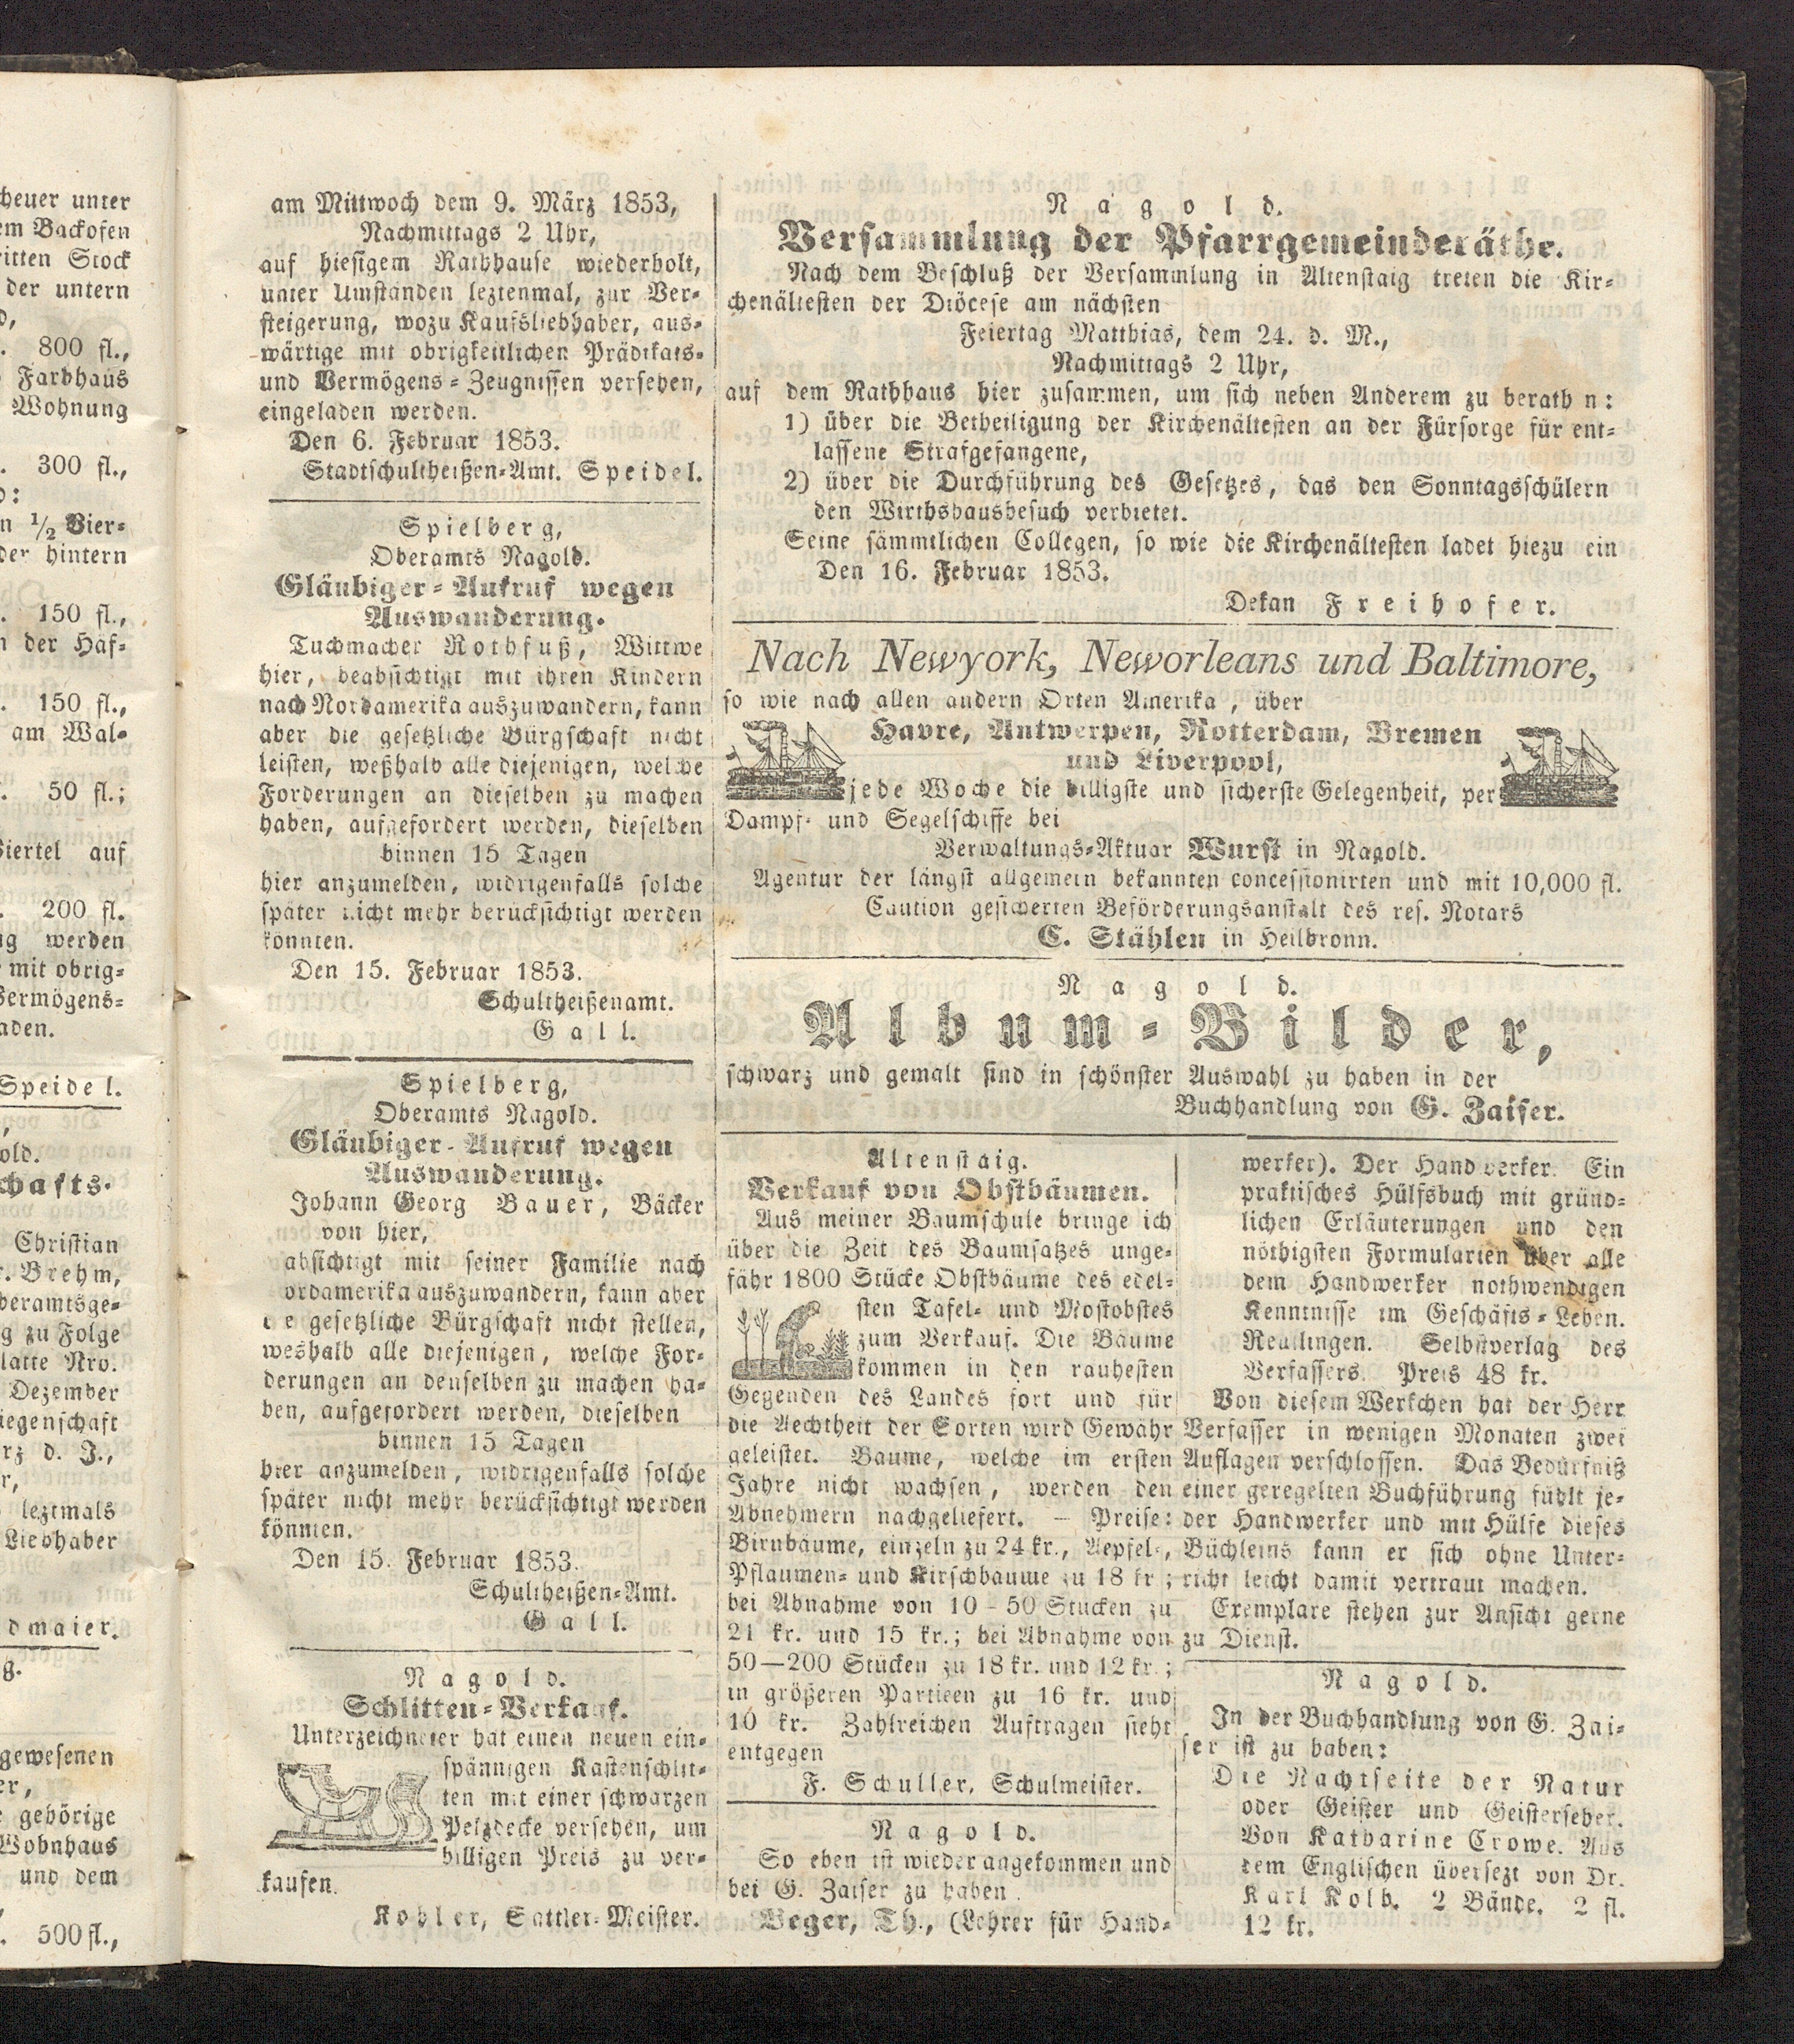 cheuer unter
em Backofen
ritten Stock
der untern
d,
. 800 fl.,
Farbhaus
Wohnung
. 300 fl.,
d:
n ½ Vier-
der hintern
. 150 fl.,
n der Häf-
. 150 fl.,
am Wal-
. 50 fl.;
Viertel auf
. 200 fl.
ng werden
mit obrig-
Vermögens-
aden.
Speidel.
old.
chafts-
Christian
r. Brehm,
beramtsge-
g zu Folge
latte Nro.
Dezember
iegenschaft
rz d. J.,
r,
leztmals
Liebhaber
dmaier.
g.
gewesenen
er,
gehörige
Wohnhaus
und dem
. 500 fl.,
am Mittwoch dem 9. März 1853,
Nachmittags 2 Uhr,
auf hiesigem Rathhause wiederholt,
unter Umständen leztenmal, zur Ver-
steigerung, wozu Kaufsliebhaber, aus-
wärtige mit obrigkeitlichen Prädikats-
und Vermögens-Zeugnissen versehen,
eingeladen werden.
Den 6. Februar 1853.
Stadtschultheißen-Amt. Speidel.
Spielberg,
Oberamts Nagold.
Gläubiger-Aufruf wegen
Auswanderung.
Tuchmacher Rothfuß, Wittwe
hier, beabsichtigt mit ihren Kindern
nach Nordamerika auszuwandern, kann
aber die gesetzliche Bürgschaft nicht
leisten, weßhalb alle diejenigen, welche
Forderungen an dieselben zu machen
haben, aufgefordert werden, dieselben
binnen 15 Tagen
hier anzumelden, widrigenfalls solche
später nicht mehr berücksichtigt werden
könnten.
Den 15. Februar 1853.
Schultheißenamt.
Gall.
Spielberg,
Oberamts Nagold.
Gläubiger-Aufruf wegen
Auswanderung.
Johann Georg Bauer, Bäcker
von hier,
absichtigt mit seiner Familie nach
ordamerika auszuwandern, kann aber
i e gesetzliche Bürgschaft nicht stellen,
weshalb alle diejenigen, welche For-
derungen an denselben zu machen ha-
ben, aufgefordert werden, dieselben
binnen 15 Tagen
hier anzumelden, widrigenfalls solche
später nicht mehr berücksichtigt werden
könnten.
Den 15. Februar 1853.
Schultheißen-Amt.
Gall.
Nagold.
Schlitten-Verkauf.
Unterzeichneter hat einen neuen ein-
spännigen Kastenschlit-
ten mit einer schwarzen
Pelzdecke versehen, um
billigen Preis zu ver-
kaufen.
Kohler, Sattler-Meister.
Nagold.
Versammlung der Pfarrgemeinderäthe.
Nach dem Beschluß der Versammlung in Altenstaig treten die Kir-
chenältesten der Diöcese am nächsten
Feiertag Matthias, dem 24. d. M.,
Nachmittags 2 Uhr,
auf dem Rathhaus hier zusammen, um sich neben Anderem zu berath n:
1) über die Betheiligung der Kirchenältesten an der Fürsorge für ent-
lassene Strafgefangene,
2) über die Durchführung des Gesetzes, das den Sonntagsschülern
den Wirthshausbesuch verbietet.
Seine sämmtlichen Collegen, so wie die Kirchenältesten ladet hiezu ein
Den 16. Februar 1853.
Dekan Freihofer.
Nach Newyork, Neworleans und Baltimore,
so wie nach allen andern Orten Amerika, über
Havre, Antwerpen, Rotterdam, Bremen
und Liverpool,
jede Woche die billigste und sicherste Gelegenheit, per
Dampf- und Segelschiffe bei
Verwaltungs-Aktuar Wurst in Nagold.
Agentur der längst allgemein bekannten concessionirten und mit 10,000 fl.
Caution gesicherten Beförderungsanstalt des res. Notars
C. Stählen in Heilbronn.
Nagold.
Album-Bilder,
schwarz und gemalt sind in schönster Auswahl zu haben in der
Buchhandlung von G. Zaiser.
Altenstaig.
Verkauf von Obstbäumen.
Aus meiner Baumschule bringe ich
über die Zeit des Baumsatzes unge-
fähr 1800 Stücke Obstbäume des edel-
sten Tafel- und Mostobstes
zum Verkauf. Die Bäume
kommen in den rauhesten
Gegenden des Landes fort und für
die Aechtheit der Sorten wird Gewähr
geleistet. Bäume, welche im ersten
Jahre nicht wachsen, werden den
Abnehmern nachgeliefert. — Preise:
Birnbäume, einzeln zu 24 kr., Aepfel-,
Pflaumen- und Kirschbäume zu 18 kr;
bei Abnahme von 10-50 Stücken zu
21 kr. und 15 kr.; bei Abnahme von
50—200 Stücken zu 18 kr. und 12 kr.;
in größeren Partieen zu 16 kr. und
10 kr. Zahlreichen Aufträgen sieht
entgegen
F. Schuller, Schulmeister.
Nagold.
So eben ist wieder angekommen und
bei G. Zaiser zu haben.
Beger, Th., (Lehrer für Hand-
werker). Der Handwerker. Ein
praktisches Hülfsbuch mit gründ-
lichen Erläuterungen und den
nöthigsten Formularien über alle
dem Handwerker nothwendigen
Kenntnisse im Geschäfts-Leben.
Reutlingen. Selbstverlag des
Verfassers. Preis 48 kr.
Von diesem Werkchen hat der Herr
Verfasser in wenigen Monaten zwei
Auflagen verschlossen. Das Bedürfniß
einer geregelten Buchführung fühlt je-
der Handwerker und mit Hülfe dieses
Büchleins kann er sich ohne Unter-
richt leicht damit vertraut machen.
Exemplare stehen zur Ansicht gerne
zu Dienst.
Nagold.
In der Buchhandlung von G. Zai-
ser ist zu haben:
Die Nachtseite der Natur
oder Geister und Geisterseher.
Von Katharine Crowe. Aus
dem Englischen übersezt von Dr.
Karl Kolb. 2 Bände. 2 fl.
12 kr.